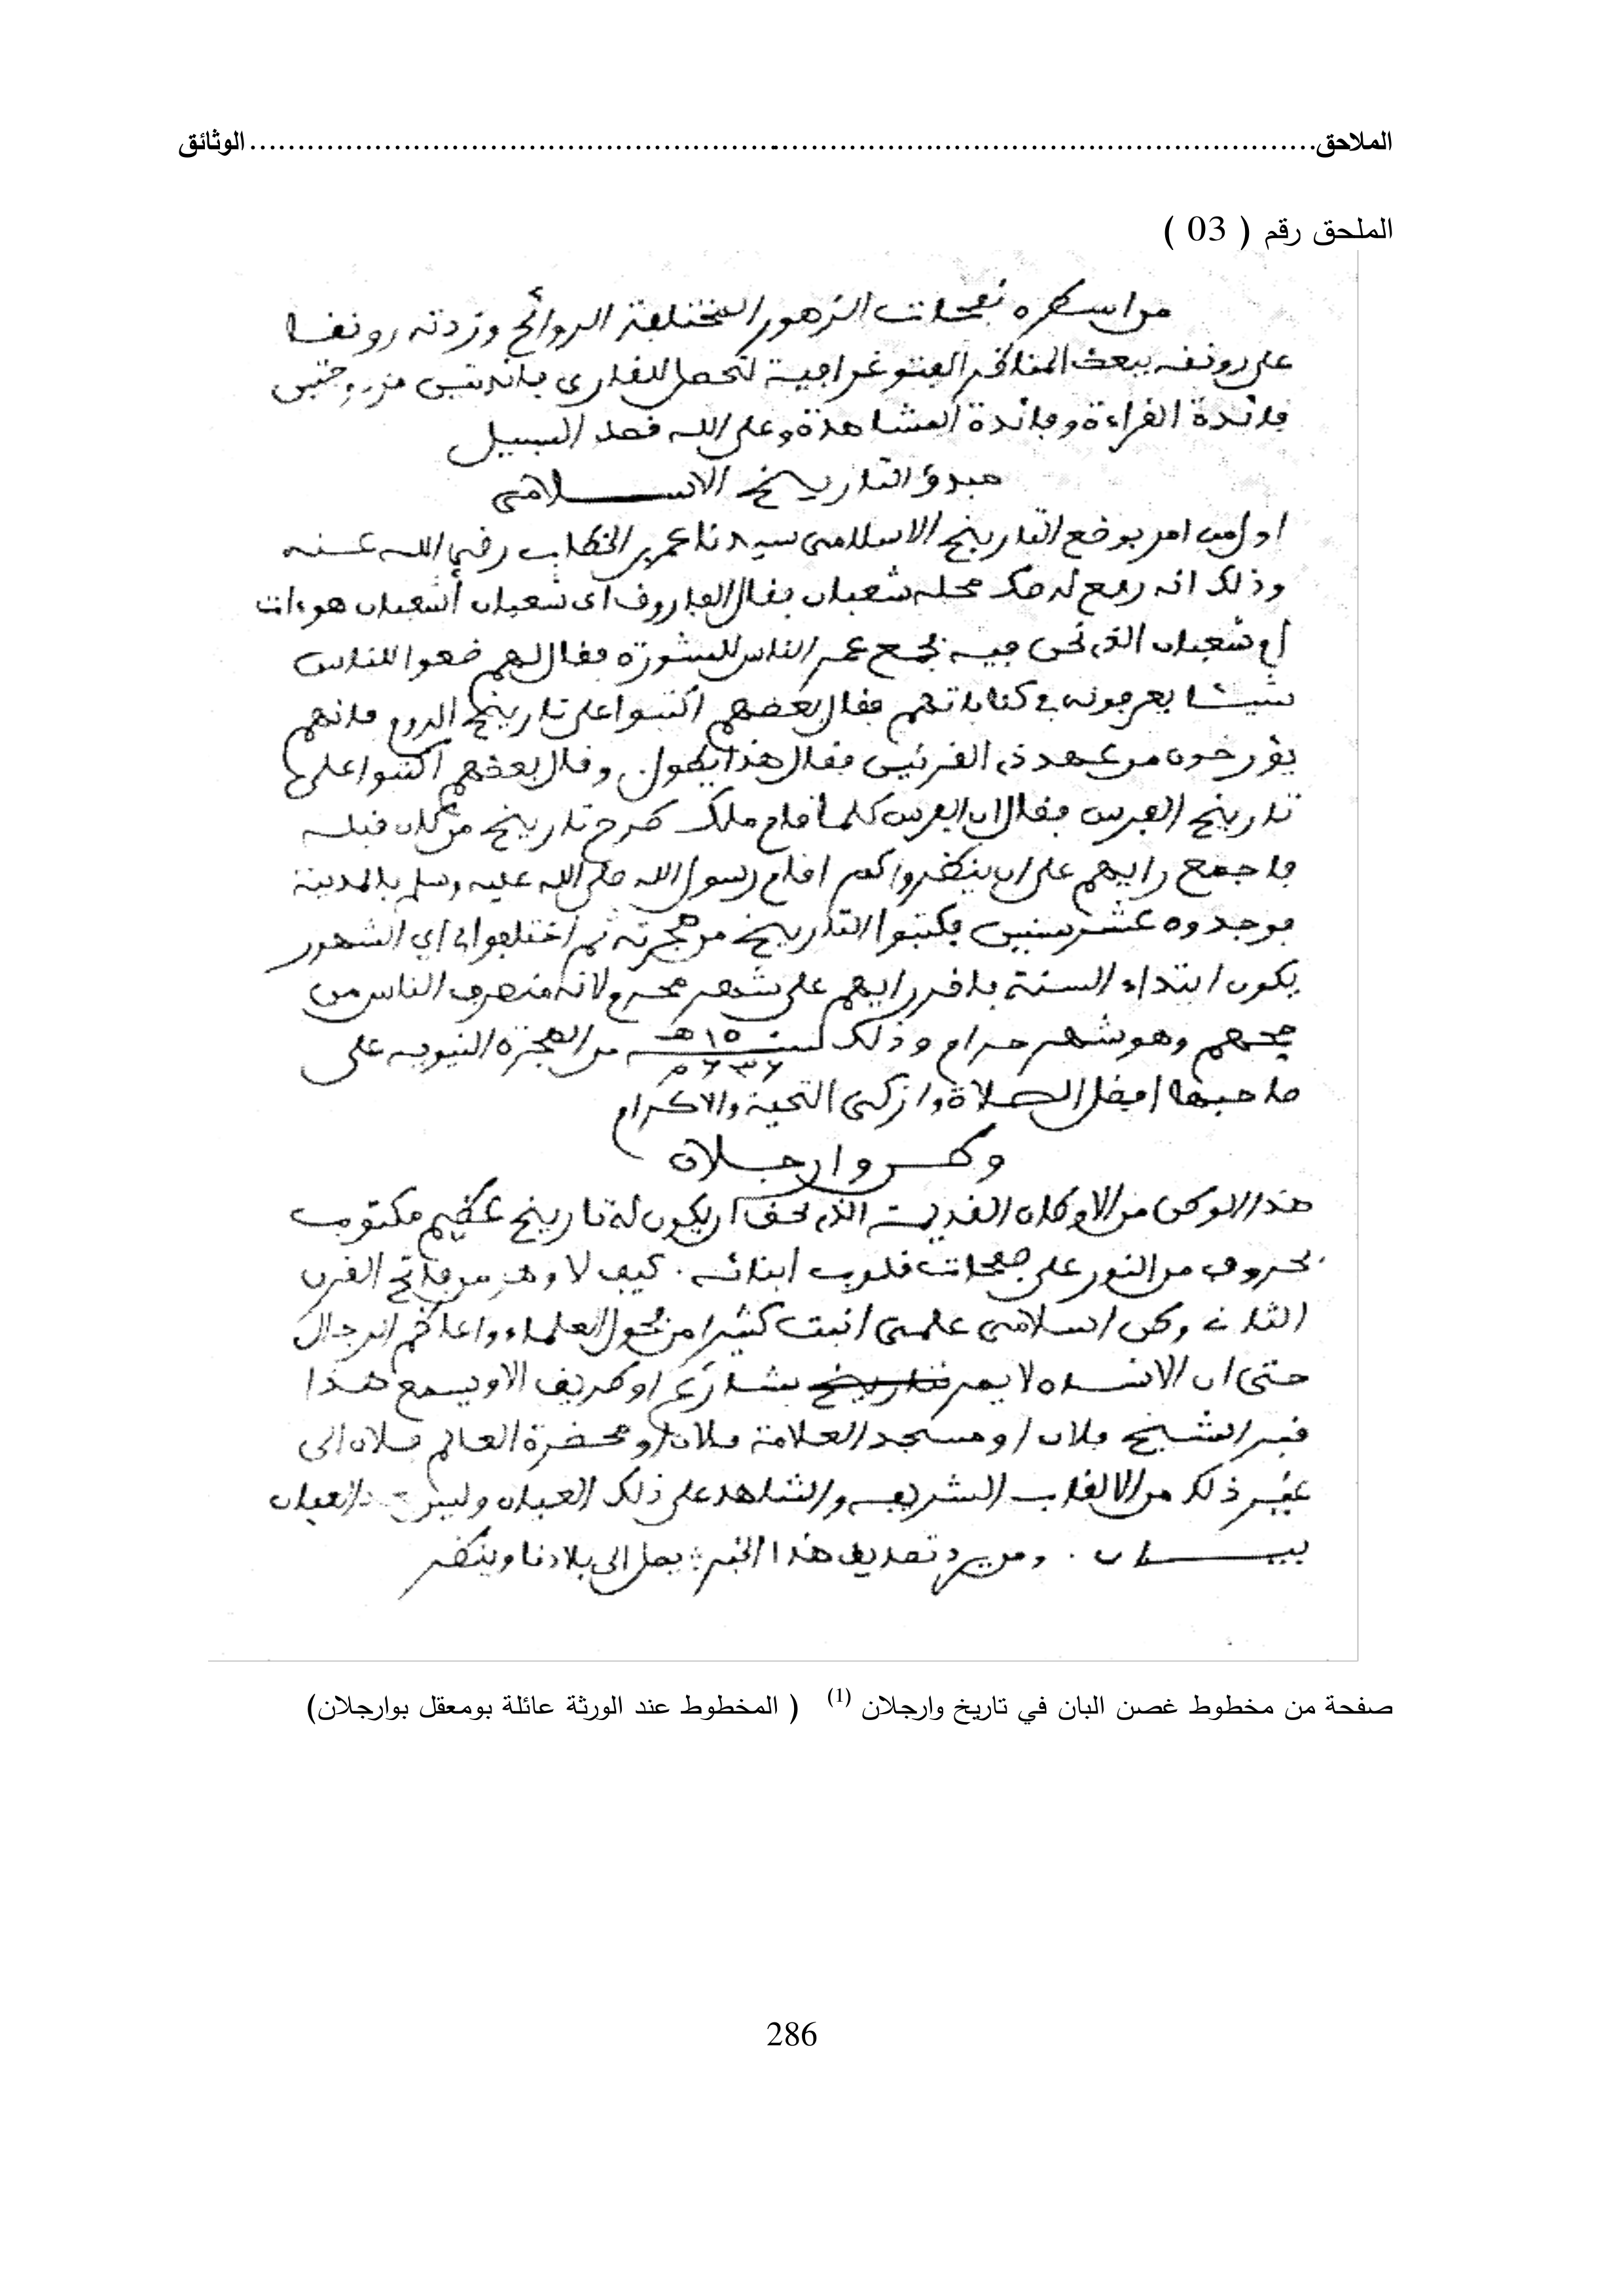 الملاحق..........................................................................................................الوثائق
الملحق رقم ( 03 )
من اسطره نفحات الزهور المختلفة الروائح وزدته رونقا
على رونقه ببعض المناظر الفتوغرافية لتحصل للقارى فائدتين مزدوجتين
فائدة القراءة وفائدة المشاهدة وعلى الله قصد السبيل
مبدؤ التاريخ الاسلامي
اول من امر بوضع التاريخ الاسلامي سيدنا عمر بن الخطاب رضي الله عنه
وذلك انه رفع له صك محله شعبان فقال الفاروف اى شعبان أشعبان هوءات
أم شعبان الذي نحن فيه فجمع عمر الناس للمشورة فقال لهم ضعوا للناس
شيئا يعرفونه في كتاباتهم فقال بعضهم اكتبوا على تاريخ الروم فانهم
يؤرخون من عهد ذي القرنين فقال هذا يطول. وقال بعضهم اكتبوا على
تاريخ الفرس فقال ان الفرس كلما قام ملك طرح تاريخ من كان قبله
فاجمع رايهم على ان ينظروا كم اقام رسول الله صلى الله عليه وسلم بالمدينة
فوجدوه عشر سنين فكتبوا التاريخ من هجرته ثم اختلفوا في اي الشهور
يكون ابتداء السنة فاقر رايهم على شهر محرم لانه منصرف الناس من
حجهم وهو شهر حرام وذلك لسنة ١٥ هـ من الهجرة النبوية على
٦٣٦ م
صاحبها افضل الصلاة وازكى التحية والاكرام
وطن وارجلان
هذا الوطن من الاوطان القديمة الذي يحق ان يكون له تاريخ عظيم مكتوب
بحروف من النور على صفحات قلوب ابنائه. كيف لا وهو من فاتح القرن
الثاني وطن اسلامي علمي انبت كثيرا من فحول العلماء واعاظم الرجال
حتى ان الانسان لا يمر بتاريخ بشارع او طريق الا ويسمع هذا
قبر الشيخ فلان او مسجد العلامة فلان او محضرة العالم فلان الى
غير ذلك من الالقاب الشريفة والشاهد على ذلك العيان وليس العيان
بيان. ومن يرد تصديق هذا الخبر يصل الى بلادنا وينظر
صفحة من مخطوط غصن البان في تاريخ وارجلان (1) ( المخطوط عند الورثة عائلة بومعقل بوارجلان)
286